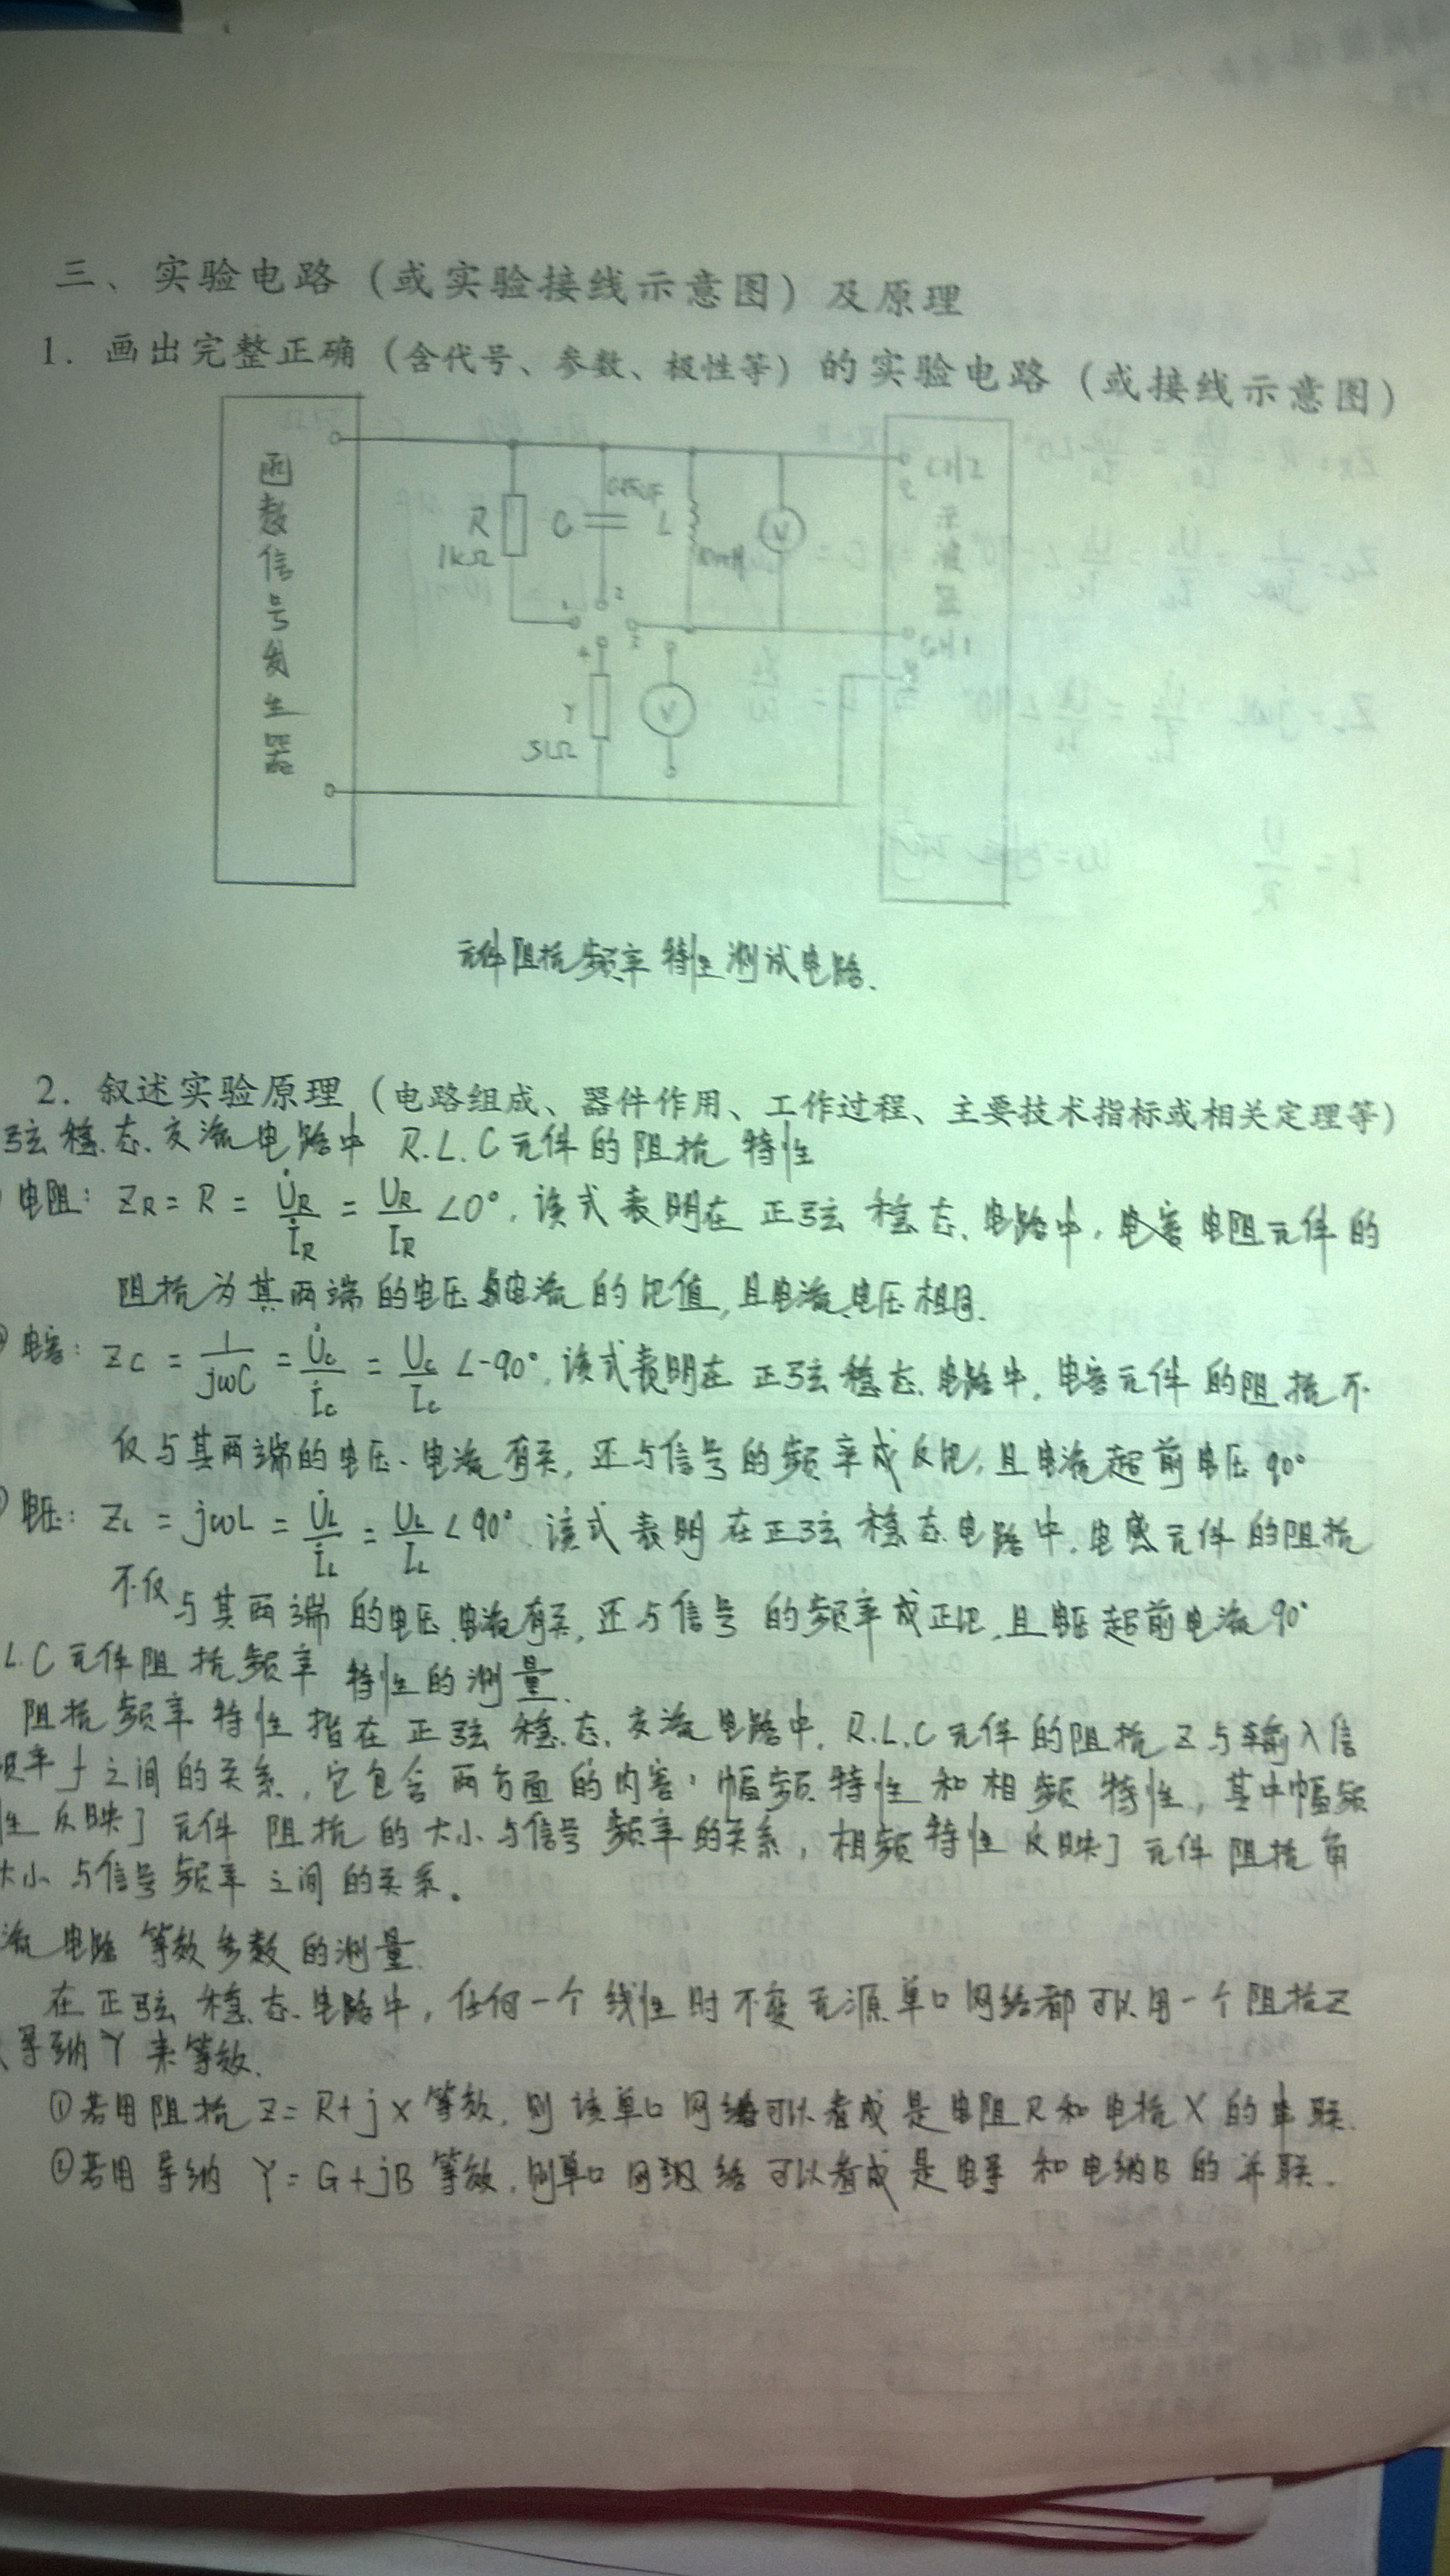 三、实验电路（或实验接线示意图）及原理
1. 画出完整正确（含代号、参数、极性等）的实验电路（或接线示意图）
函数信号发生器
R
1kΩ
C
L
10mH
V
CH2
示波器
CH1
1
2
3
4
r
51Ω
V
元件阻抗频率特性测试电路.
2. 叙述实验原理（电路组成、器件作用、工作过程、主要技术指标或相关定理等）
弦稳态交流电路中 R.L.C元件的阻抗特性
电阻: ZR = R = U̇R/İR = UR/IR ∠0°, 该式表明在正弦稳态电路中, 电阻元件的
阻抗为其两端的电压与电流的比值, 且电流、电压相同.
电容: ZC = 1/jωC = U̇C/İC = UC/IC ∠-90°, 该式表明在正弦稳态电路中, 电容元件的阻抗不
仅与其两端的电压、电流有关, 还与信号的频率成反比, 且电流超前电压90°
电压: ZL = jωL = U̇L/İL = UL/IL ∠90° 该式表明在正弦稳态电路中, 电感元件的阻抗
不仅与其两端的电压、电流有关, 还与信号的频率成正比, 且电压超前电流90°
L.C元件阻抗频率特性的测量.
阻抗频率特性指在正弦稳态交流电路中, R.L.C元件的阻抗Z与输入信
频率f之间的关系, 它包含两方面的内容: 幅频特性和相频特性, 其中幅频
性反映了元件阻抗的大小与信号频率的关系, 相频特性反映了元件阻抗角
大小与信号频率之间的关系。
流电路等效参数的测量.
在正弦稳态电路中, 任何一个线性时不变无源单口网络都可以用一个阻抗Z
导纳Y来等效.
①若用阻抗 Z = R+jX 等效, 则该单口网络可以看成是电阻R和电抗X的串联.
②若用导纳 Y = G+jB 等效, 则单口网络可以看成是电导和电纳B的并联.